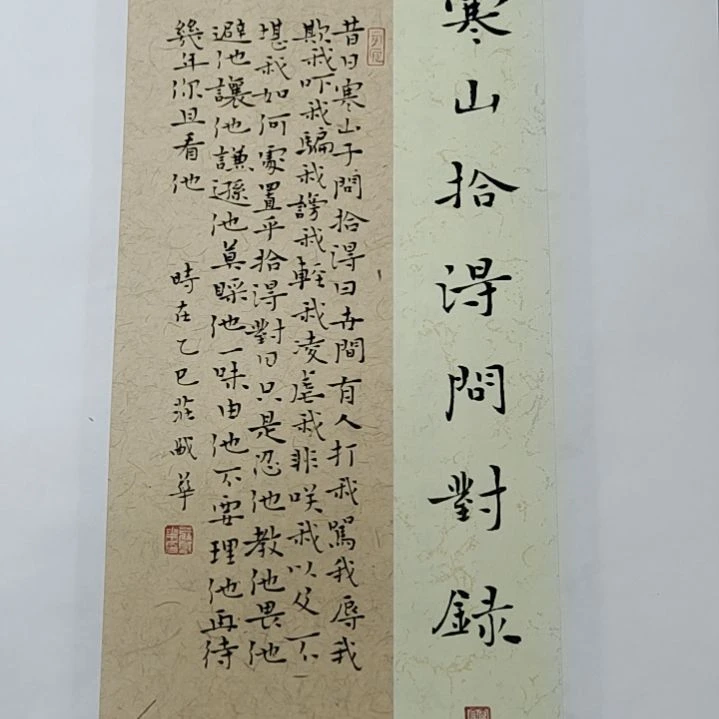 寒山拾得問對錄
昔日寒山子問拾得曰世間有人打我罵我辱我
欺我吓我騙我謗我輕我凌虐我非咲我以及不
堪我如何處置乎拾得對曰只是忍他教他畏他
避他讓他謙遜他莫睬他一味由他不要理他再待
幾年你且看他
時在乙巳莊華